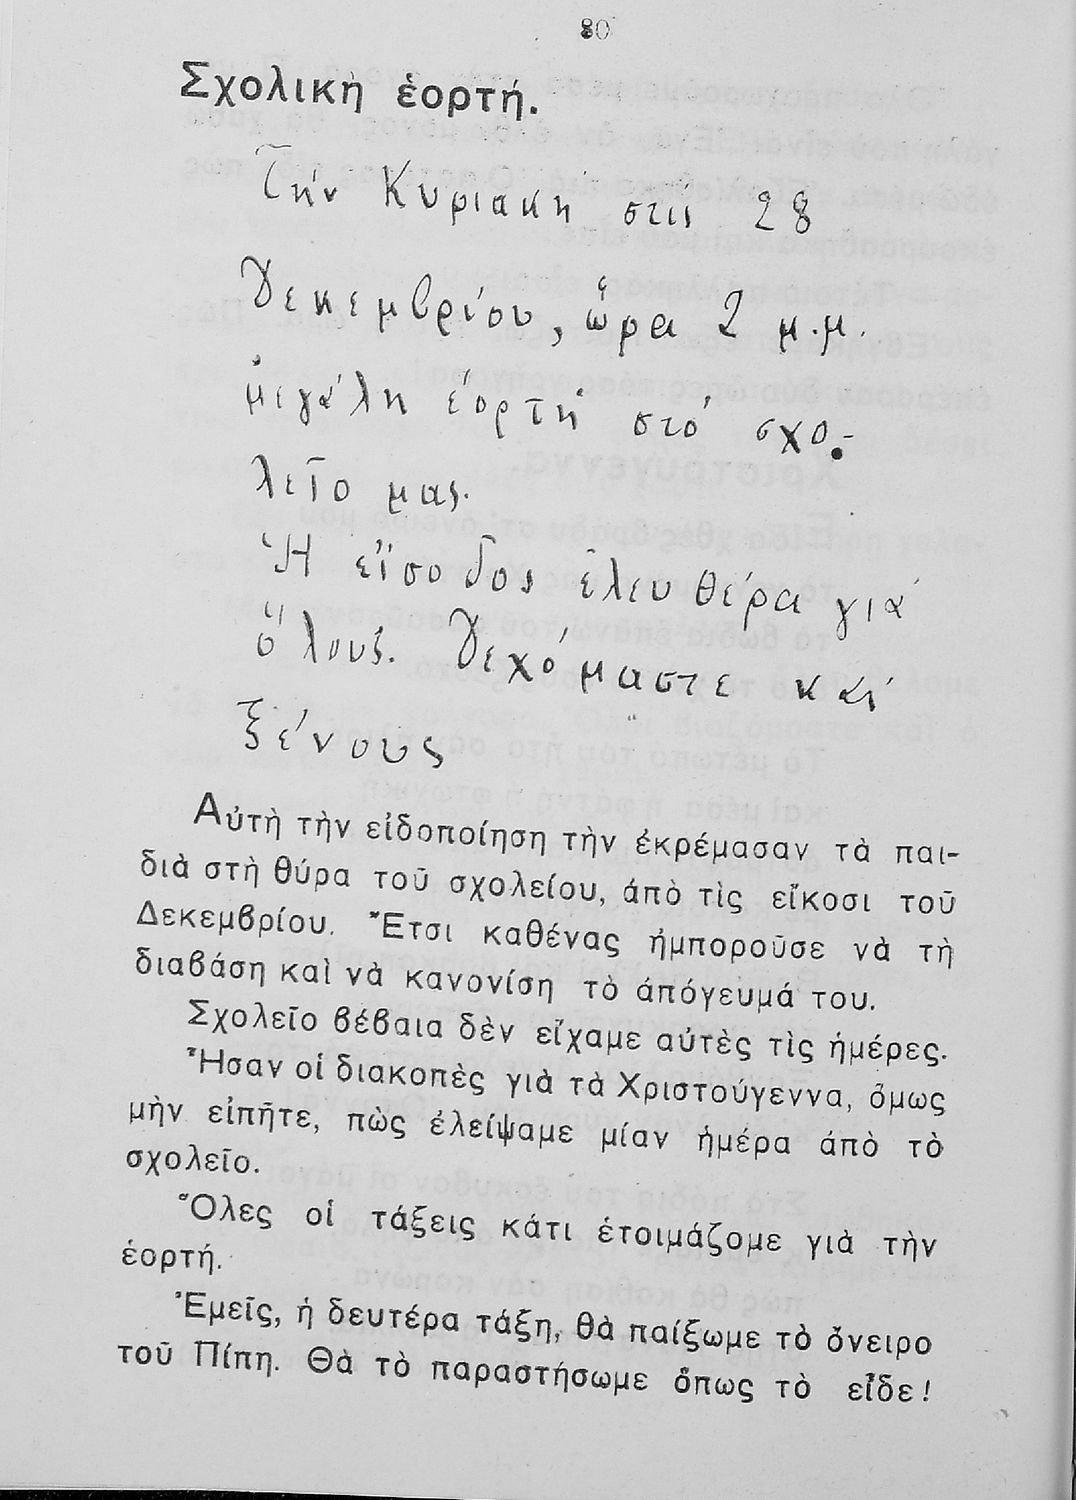 80
Σχολικὴ ἑορτή.
Τήν Κυριακή στις 28
Δεκεμβρίου, ὥρα 2 μ.μ.
μεγάλη ἑορτή στό σχο-
λεῖο μας.
Ἡ εἴσοδος ἐλευθέρα γιά
ὅλους. Δεχόμαστε καί
ξένους
Αὐτὴ τὴν εἰδοποίηση τὴν ἐκρέμασαν τὰ παι-
διὰ στὴ θύρα τοῦ σχολείου, ἀπὸ τὶς εἴκοσι τοῦ
Δεκεμβρίου. Ἔτσι καθένας ἠμποροῦσε νὰ τὴ
διαβάση καὶ νὰ κανονίση τὸ ἀπόγευμά του.
Σχολεῖο βέβαια δὲν εἴχαμε αὐτὲς τὶς ἡμέρες.
Ἦσαν οἱ διακοπὲς γιὰ τὰ Χριστούγεννα, ὅμως
μὴν εἰπῆτε, πὼς ἐλείψαμε μίαν ἡμέρα ἀπὸ τὸ
σχολεῖο.
Ὅλες οἱ τάξεις κάτι ἑτοιμάζομε γιὰ τὴν
ἑορτή.
Ἐμεῖς, ἡ δευτέρα τάξη, θὰ παίξωμε τὸ ὄνειρο
τοῦ Πίπη. Θὰ τὸ παραστήσωμε ὅπως τὸ εἶδε!